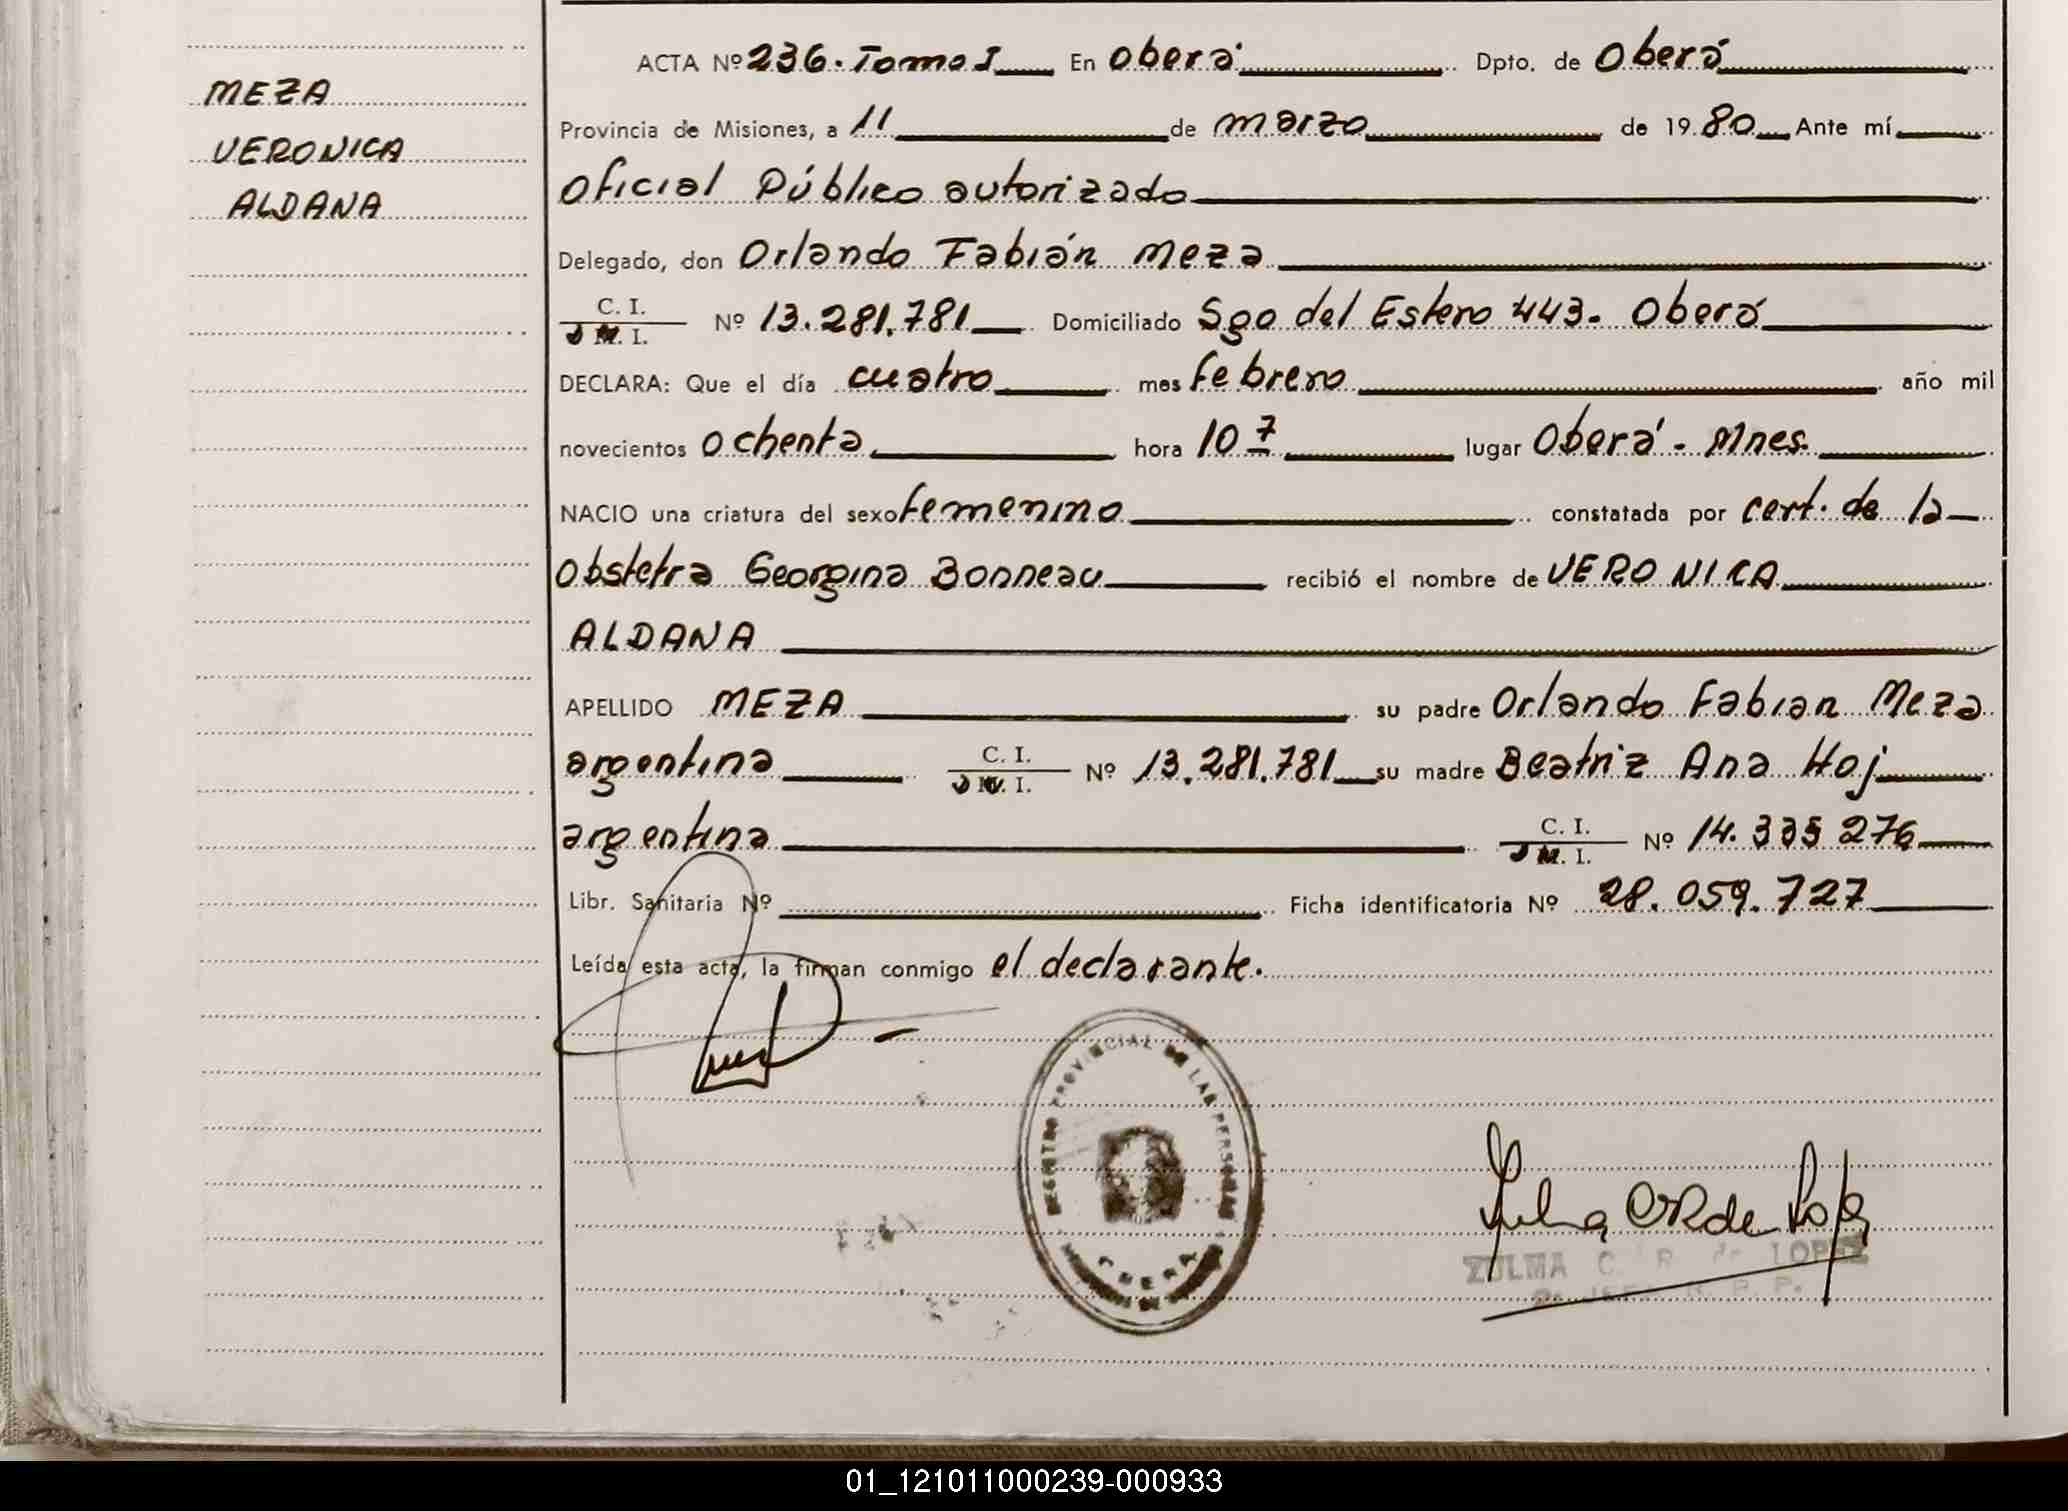 MEZA
VERONICA
ALDANA
ACTA Nº 236. Tomo I En Oberá Dpto. de Oberá
Provincia de Misiones, a 11 de marzo de 19 80 Ante mí
Oficial Público autorizado
Delegado, don Orlando Fabián Meza
C. I.
M. I. Nº 13.281.781 Domiciliado Sgo del Estero 443. Oberá
DECLARA: Que el día cuatro mes febrero año mil
novecientos ochenta hora 10 7 lugar Oberá - Mnes.
NACIO una criatura del sexo femenino constatada por cert. de la
Obstetra Georgina Bonneau recibió el nombre de VERONICA
ALDANA
APELLIDO MEZA su padre Orlando Fabian Meza
argentina C. I. M. I. Nº 13.281.781 su madre Beatriz Ana Hoj
argentina C. I. M. I. Nº 14.335 276
Libr. Sanitaria Nº Ficha identificatoria Nº 28.059.727
Leída esta acta, la firman conmigo el declarante.
REGISTRO PROVINCIAL DE LAS PERSONAS
OBERA
ZULMA C. R. de LOPEZ
01_121011000239-000933